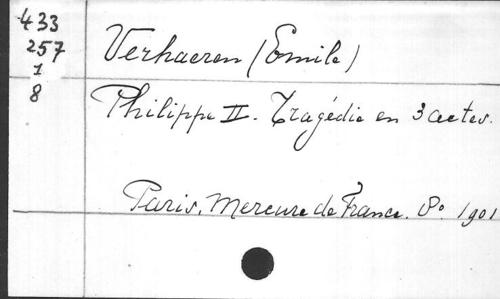 433
257
1
8
Verhaeren (Emile)
Philippe II. Tragédie en 3 actes.
Paris. Mercure de France. 8º. 1901